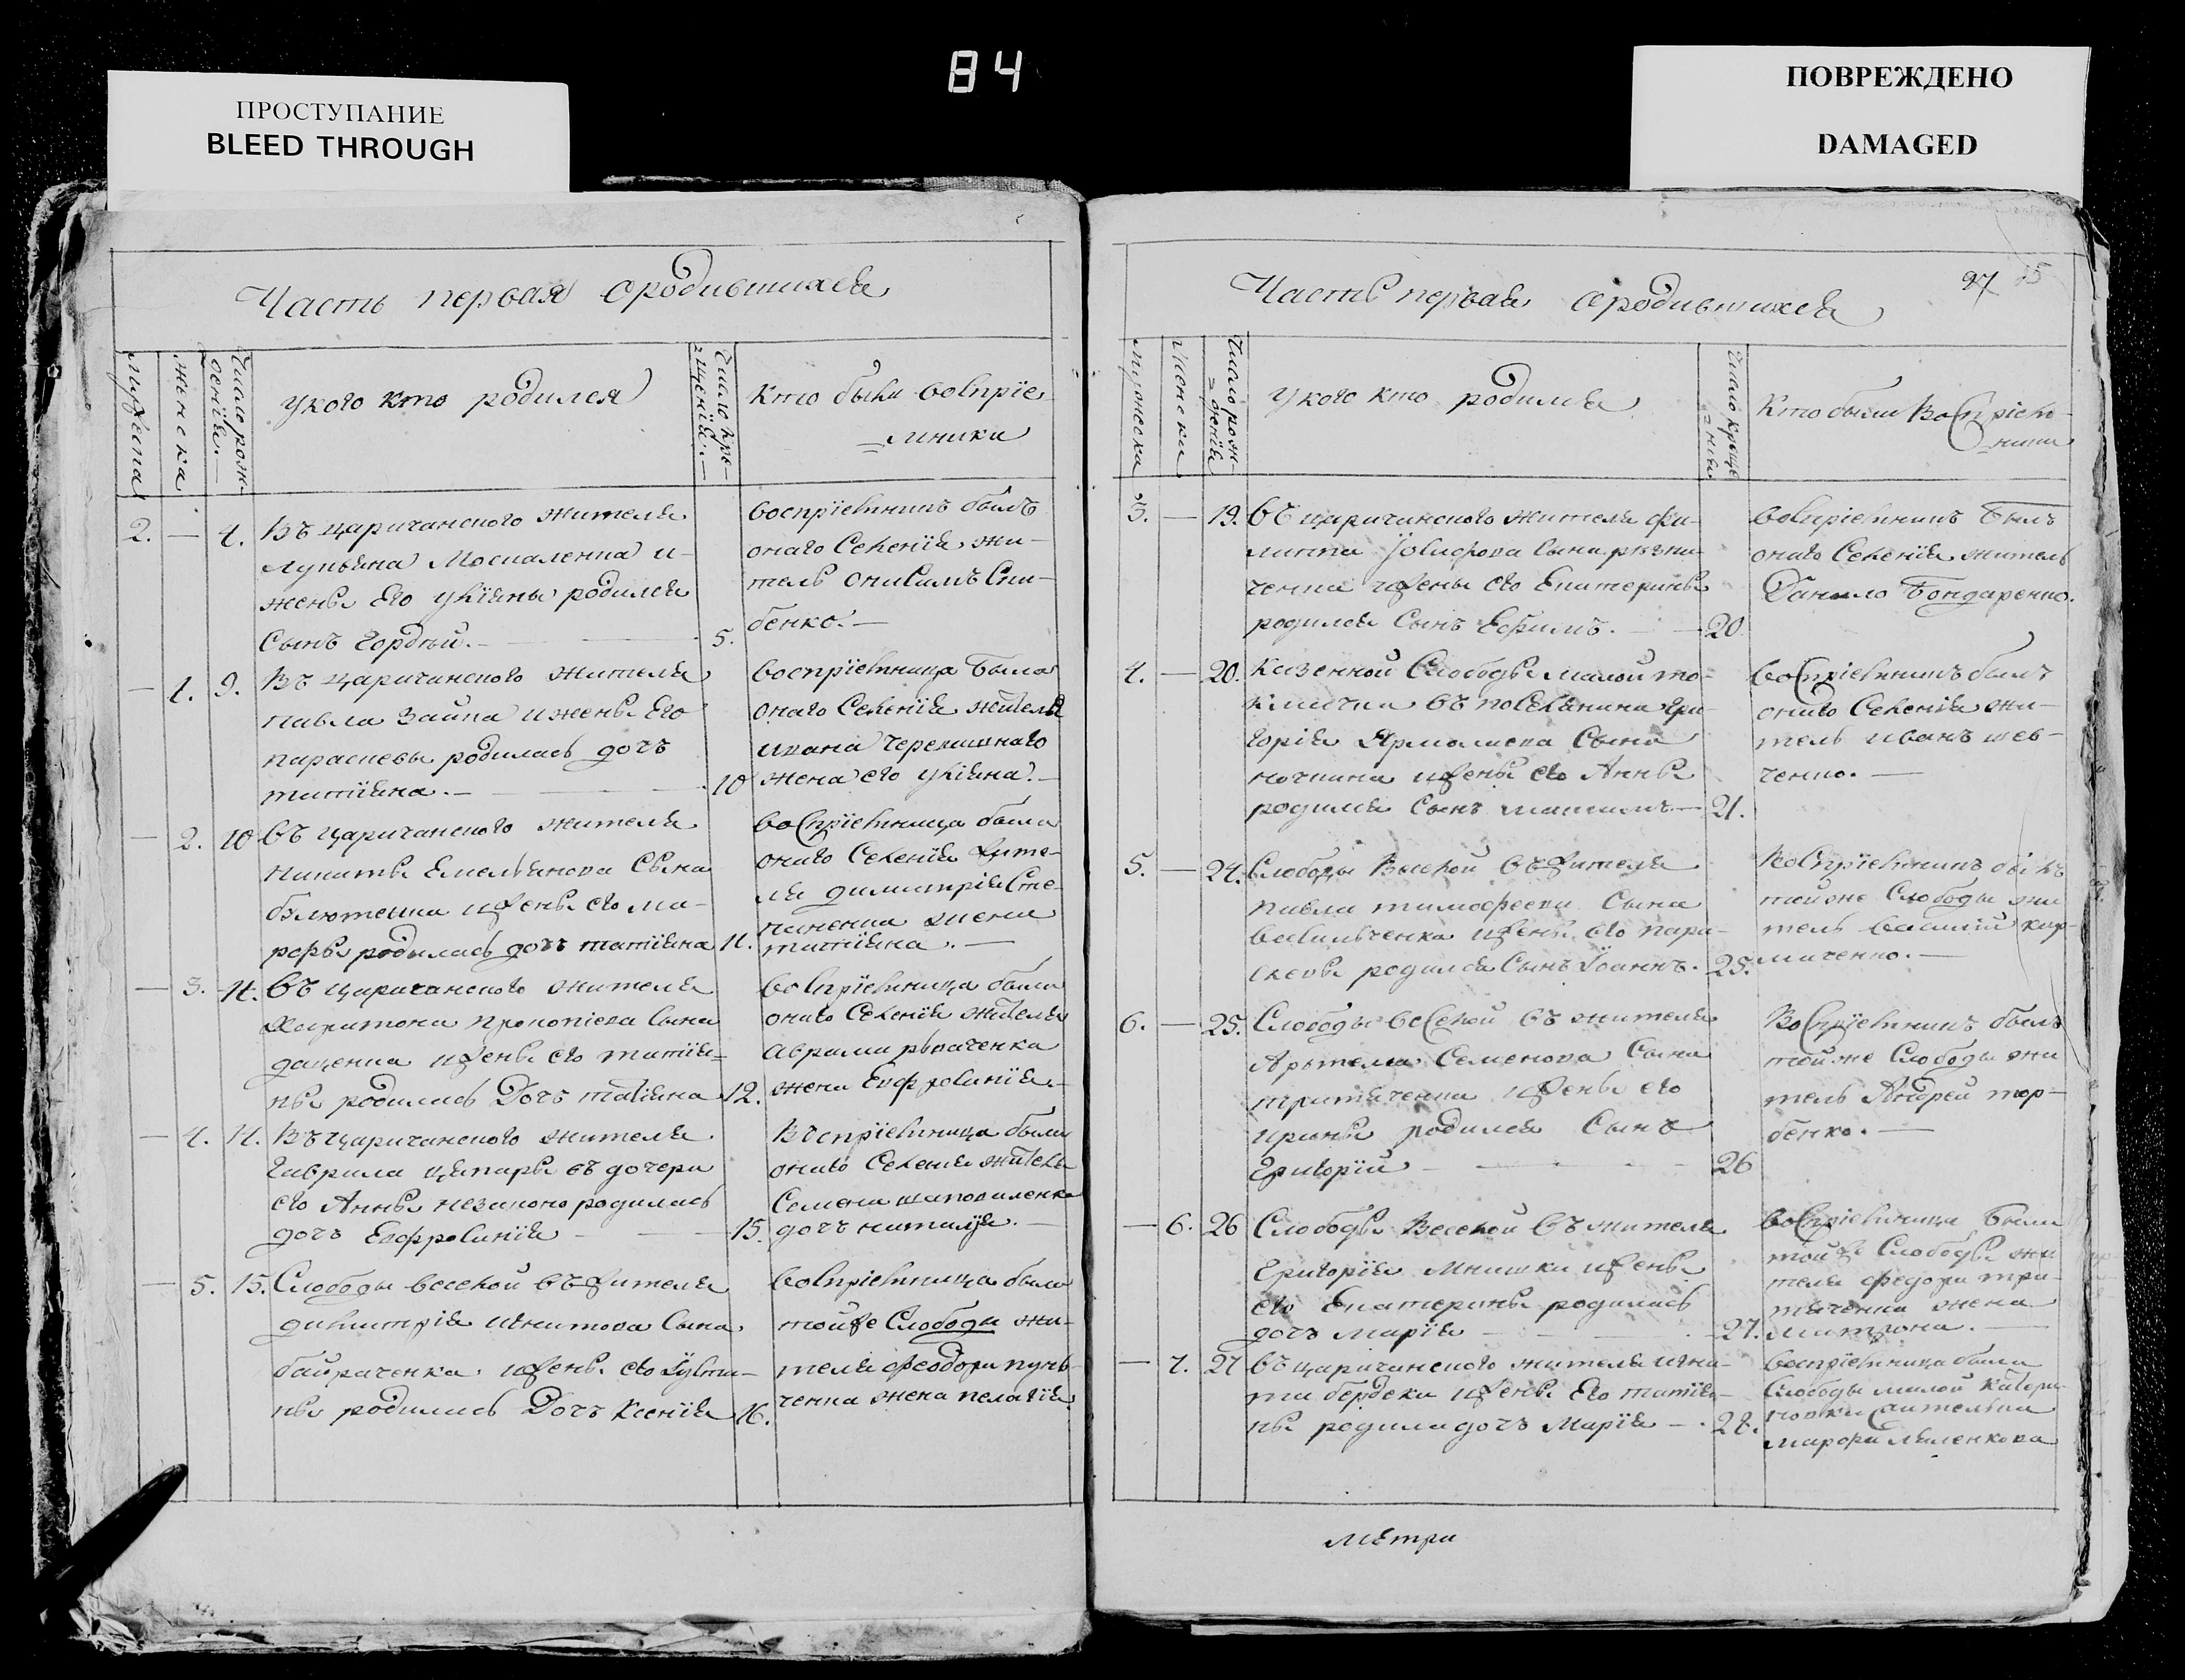 84
ПРОСТУПАНИЕ
BLEED THROUGH
ПОВРЕЖДЕНО
DAMAGED
Часть первая ородившихся
мужеска
женска
Число рож-
денїя.
укого кто родился
Число кре-
щенїя.
Кто были воспрїе-
мники
2. — 4. Въ царичанского жителя
Лукьяна Москаленка и
жены его Улїяны родился
Сынъ Гордѣй. — 5.
воспрїемникъ былъ
онаго Селенїя жи-
тель Онисимъ Ски-
бенко. —
— 1. 9. Въ царичанского жителя
павла Зайца и жены Его
параскевы родилась дочь
татїяна. — 10
воспрїемница была
онаго Селенїя жителя
ивана
жена его улїяна. —
— 2. 10 Въ царичанского жителя
никиты Емельянова Сына
и жены его ма-
рфы родилась дочь татїяна 11.
воспрїемница была
онаго Селенїя жите-
ля димитрїя Сте-
паненка жена
татїяна. —
— 3. 11. Въ царичанского жителя
Харитона прокопїева Сына
даценка и жены его татїя-
ны родилась Дочь татїяна 12.
воспрїемница была
онаго Селенїя жителя
Аврама
жена Евфросинїя. —
— 4. 14. Въ царичанского жителя
Гаврила въ дочери
его Анны незаконо родилась
дочь Евфросинїя — 15.
воспрїемница была
онаго Селенїя жителя
Семена шаповаленка
дочь наталїя. —
— 5. 15. Слободы веселой въ жителя
димитрїя игнатова Сына
байраченка и жены его Їусти-
ны родилась Дочь Ксенїя 16.
воспрїемница была
тойже Слободы жи-
теля феодора
ченка жена пелагїя
Часть первая ородившихся
97 15
мужеска
женска
Число рож-
денїя
укого кто родился
Число креще-
нїя
Кто были воспрїем-
ники
3. — 19. Въ царичанского жителя фи-
липпа Їосифова Сына
ченка и жены его Екатерины
родился Сынъ Ефимъ. — 20
воспрїемникъ былъ
онаго Селенїя житель
Данило Бондаренко.
4. — 20. Казенной Слободы малой
въ поселянина гри-
горїя Ярмолаева Сына
и жены его Анны
родился Сынъ максимъ — 21.
воспрїемникъ былъ
онаго Селенїя жи-
тель иванъ шев-
ченко. —
5. — 24. Слободы Веселой въ жителя
павла тимофеева Сына
васильченка и жены его пара-
скевы родился Сынъ Їоаннъ. 25.
воспрїемникъ былъ
тойже Слободы жи
тель василїй
—
6. — 25. Слободы веселой въ жителя
Артема Семенова Сына
третяченка и жены его
ирины родился Сынъ
Григорїй — 26
воспрїемникъ былъ
тойже Слободы жи
тель Андрей тор-
бенко. —
— 6. 26 Слободы Веселой въ жителя
Григорїя мнишки и жены
его Екатерины родилась
дочь марїя — 27.
воспрїемница была
тойже Слободы жи
теля федора тре-
тяченка жена
матрона. —
— 7. 27 въ царичанского жителя игна-
та бердеки и жены Его татїя-
ны родила дочь Марїя — 28.
воспрїемница была
Слободы малой
марфа
метри